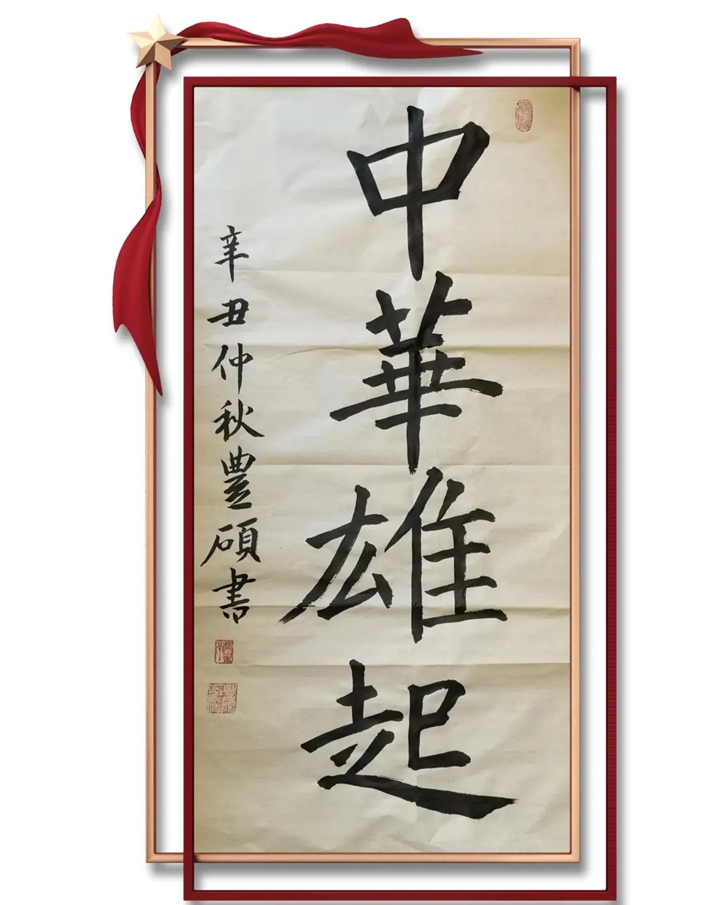 中華雄起
辛丑仲秋豐碩書